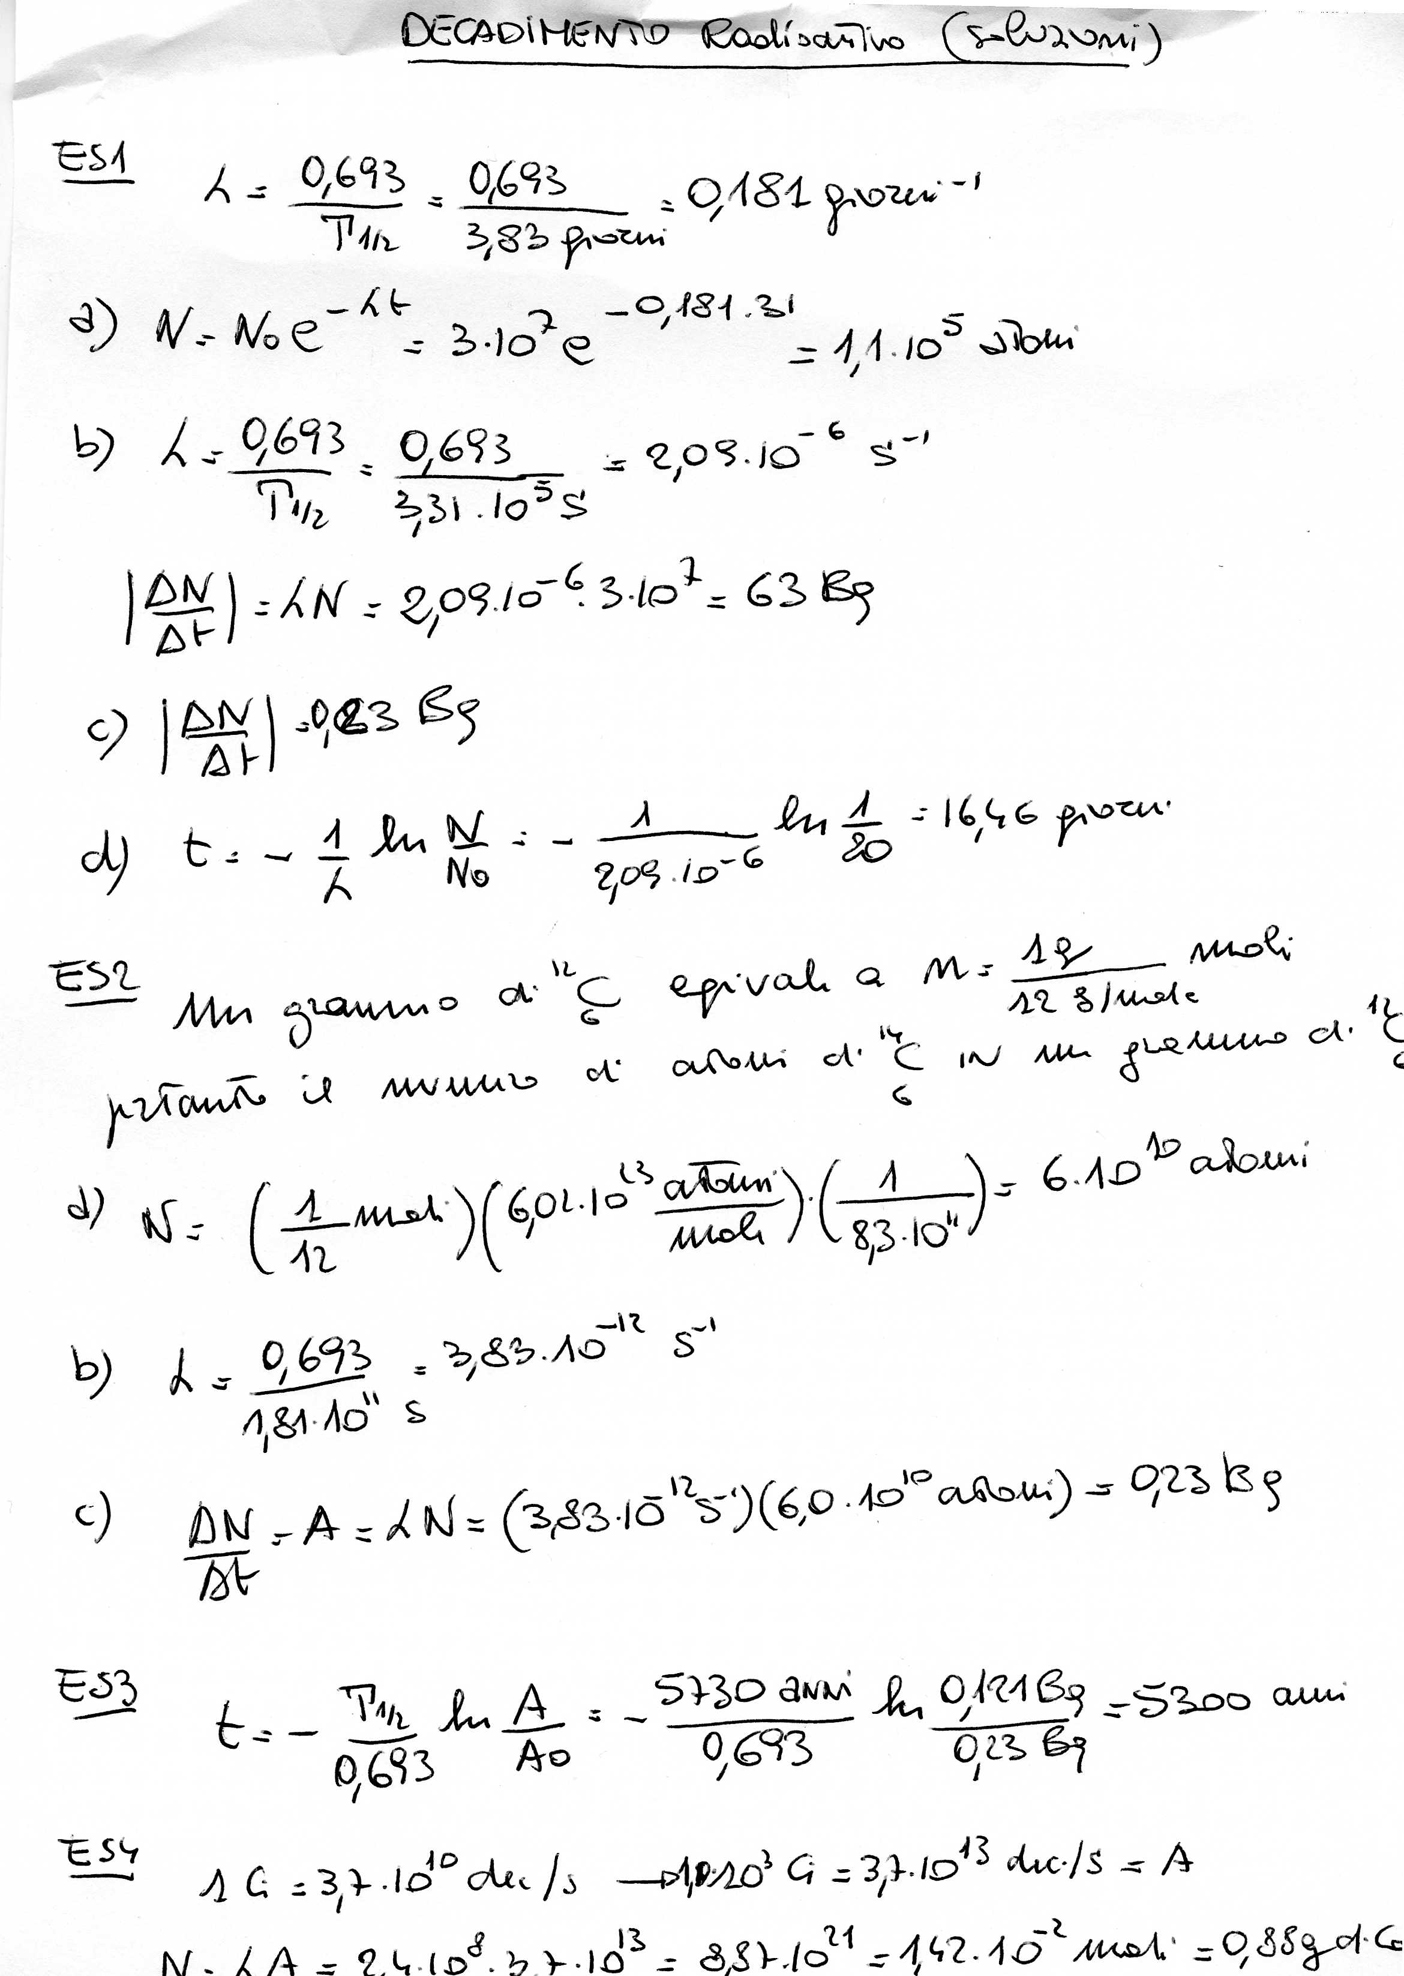 DECADIMENTO Radioattivo (soluzioni)
ES1 λ = 0,693 / T1/2 = 0,693 / 3,83 giorni = 0,181 giorni⁻¹
a) N = N₀ e^(-λt) = 3·10⁷ e^(-0,181·31) = 1,1·10⁵ atomi
b) λ = 0,693 / T1/2 = 0,693 / 3,31·10⁵ s = 2,09·10⁻⁶ s⁻¹
|ΔN/Δt| = λN = 2,09·10⁻⁶·3·10⁷ = 63 Bq
c) |ΔN/Δt| = 0,23 Bq
d) t = - 1/λ ln N/N₀ = - 1 / 2,09·10⁻⁶ ln 1/20 = 16,46 giorni
ES2 Un grammo di ¹²₆C equivale a n = 1g / 12 g/mole moli
pertanto il numero di atomi di ¹⁴₆C in un grammo di ¹²₆C
a) N = (1/12 moli)(6,02·10²³ atomi/mole)·(1 / 8,3·10¹¹) = 6·10¹⁰ atomi
b) λ = 0,693 / 1,81·10¹¹ s = 3,83·10⁻¹² s⁻¹
c) ΔN/Δt = A = λN = (3,83·10⁻¹² s⁻¹)(6,0·10¹⁰ atomi) = 0,23 Bq
ES3 t = - T1/2 / 0,693 ln A/A₀ = - 5730 anni / 0,693 ln 0,121 Bq / 0,23 Bq = 5300 anni
ES4 1 Ci = 3,7·10¹⁰ dec/s → 1,0·10³ Ci = 3,7·10¹³ dec/s = A
N = λA = 2,4·10⁸·3,7·10¹³ = 8,87·10²¹ = 1,42·10⁻² moli = 0,88g di Co